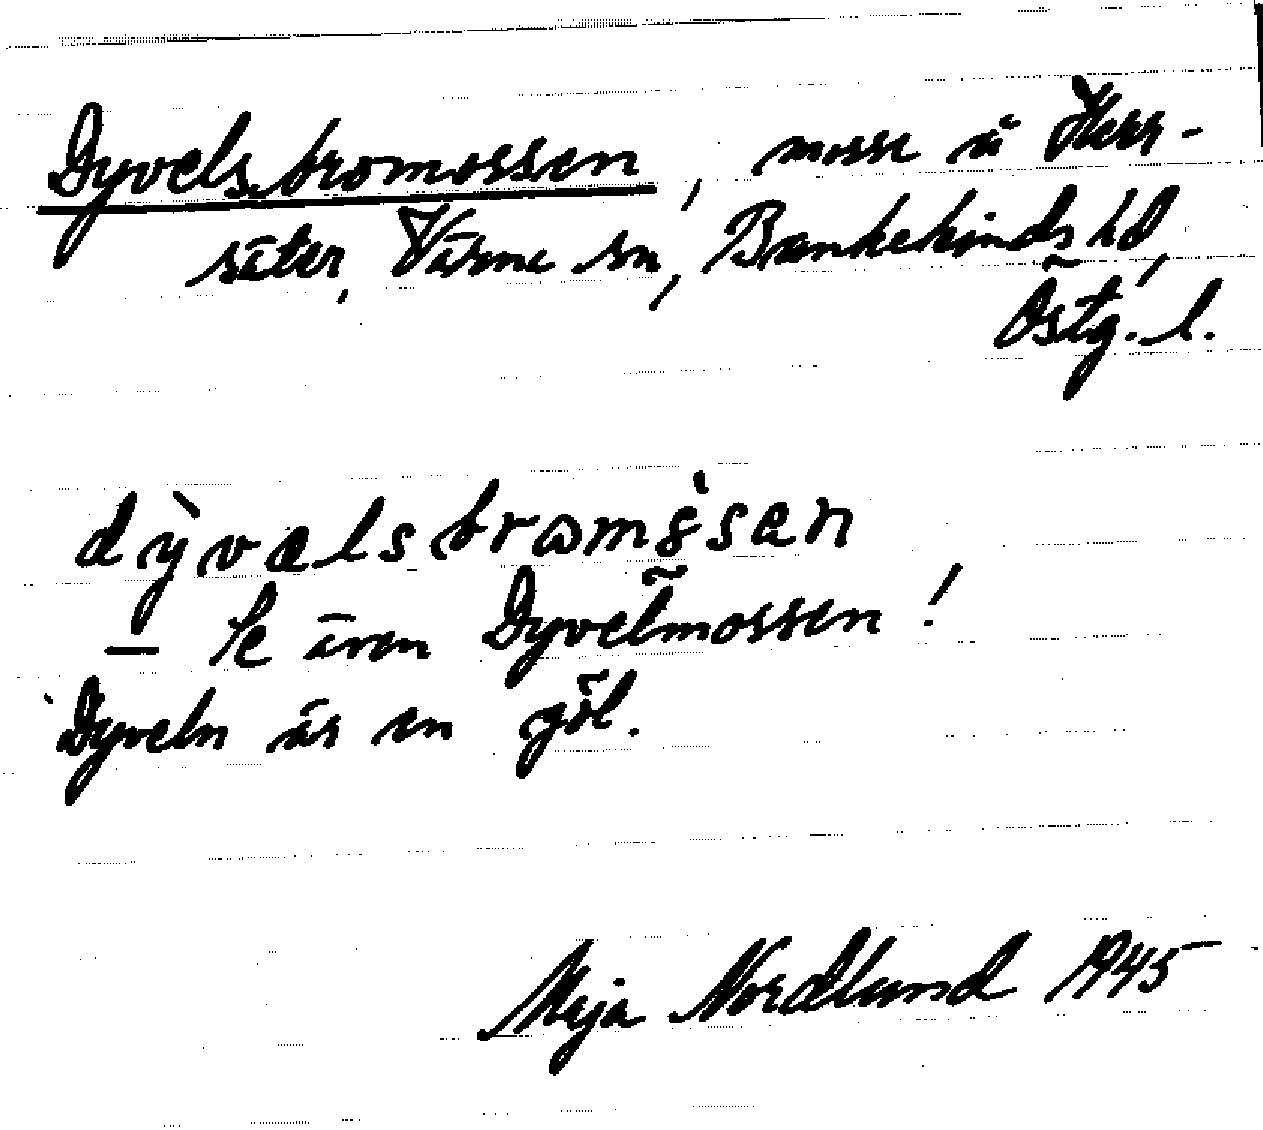 Dyvelsbromossen, mosse å Herr-
säter, Värna sn, Bankekinds hd,
Östg. l.
dỳvalsbroms̀san
— Se även Dyvelmossen!
Dyveln är en göl.
Maja Nordlund 1945